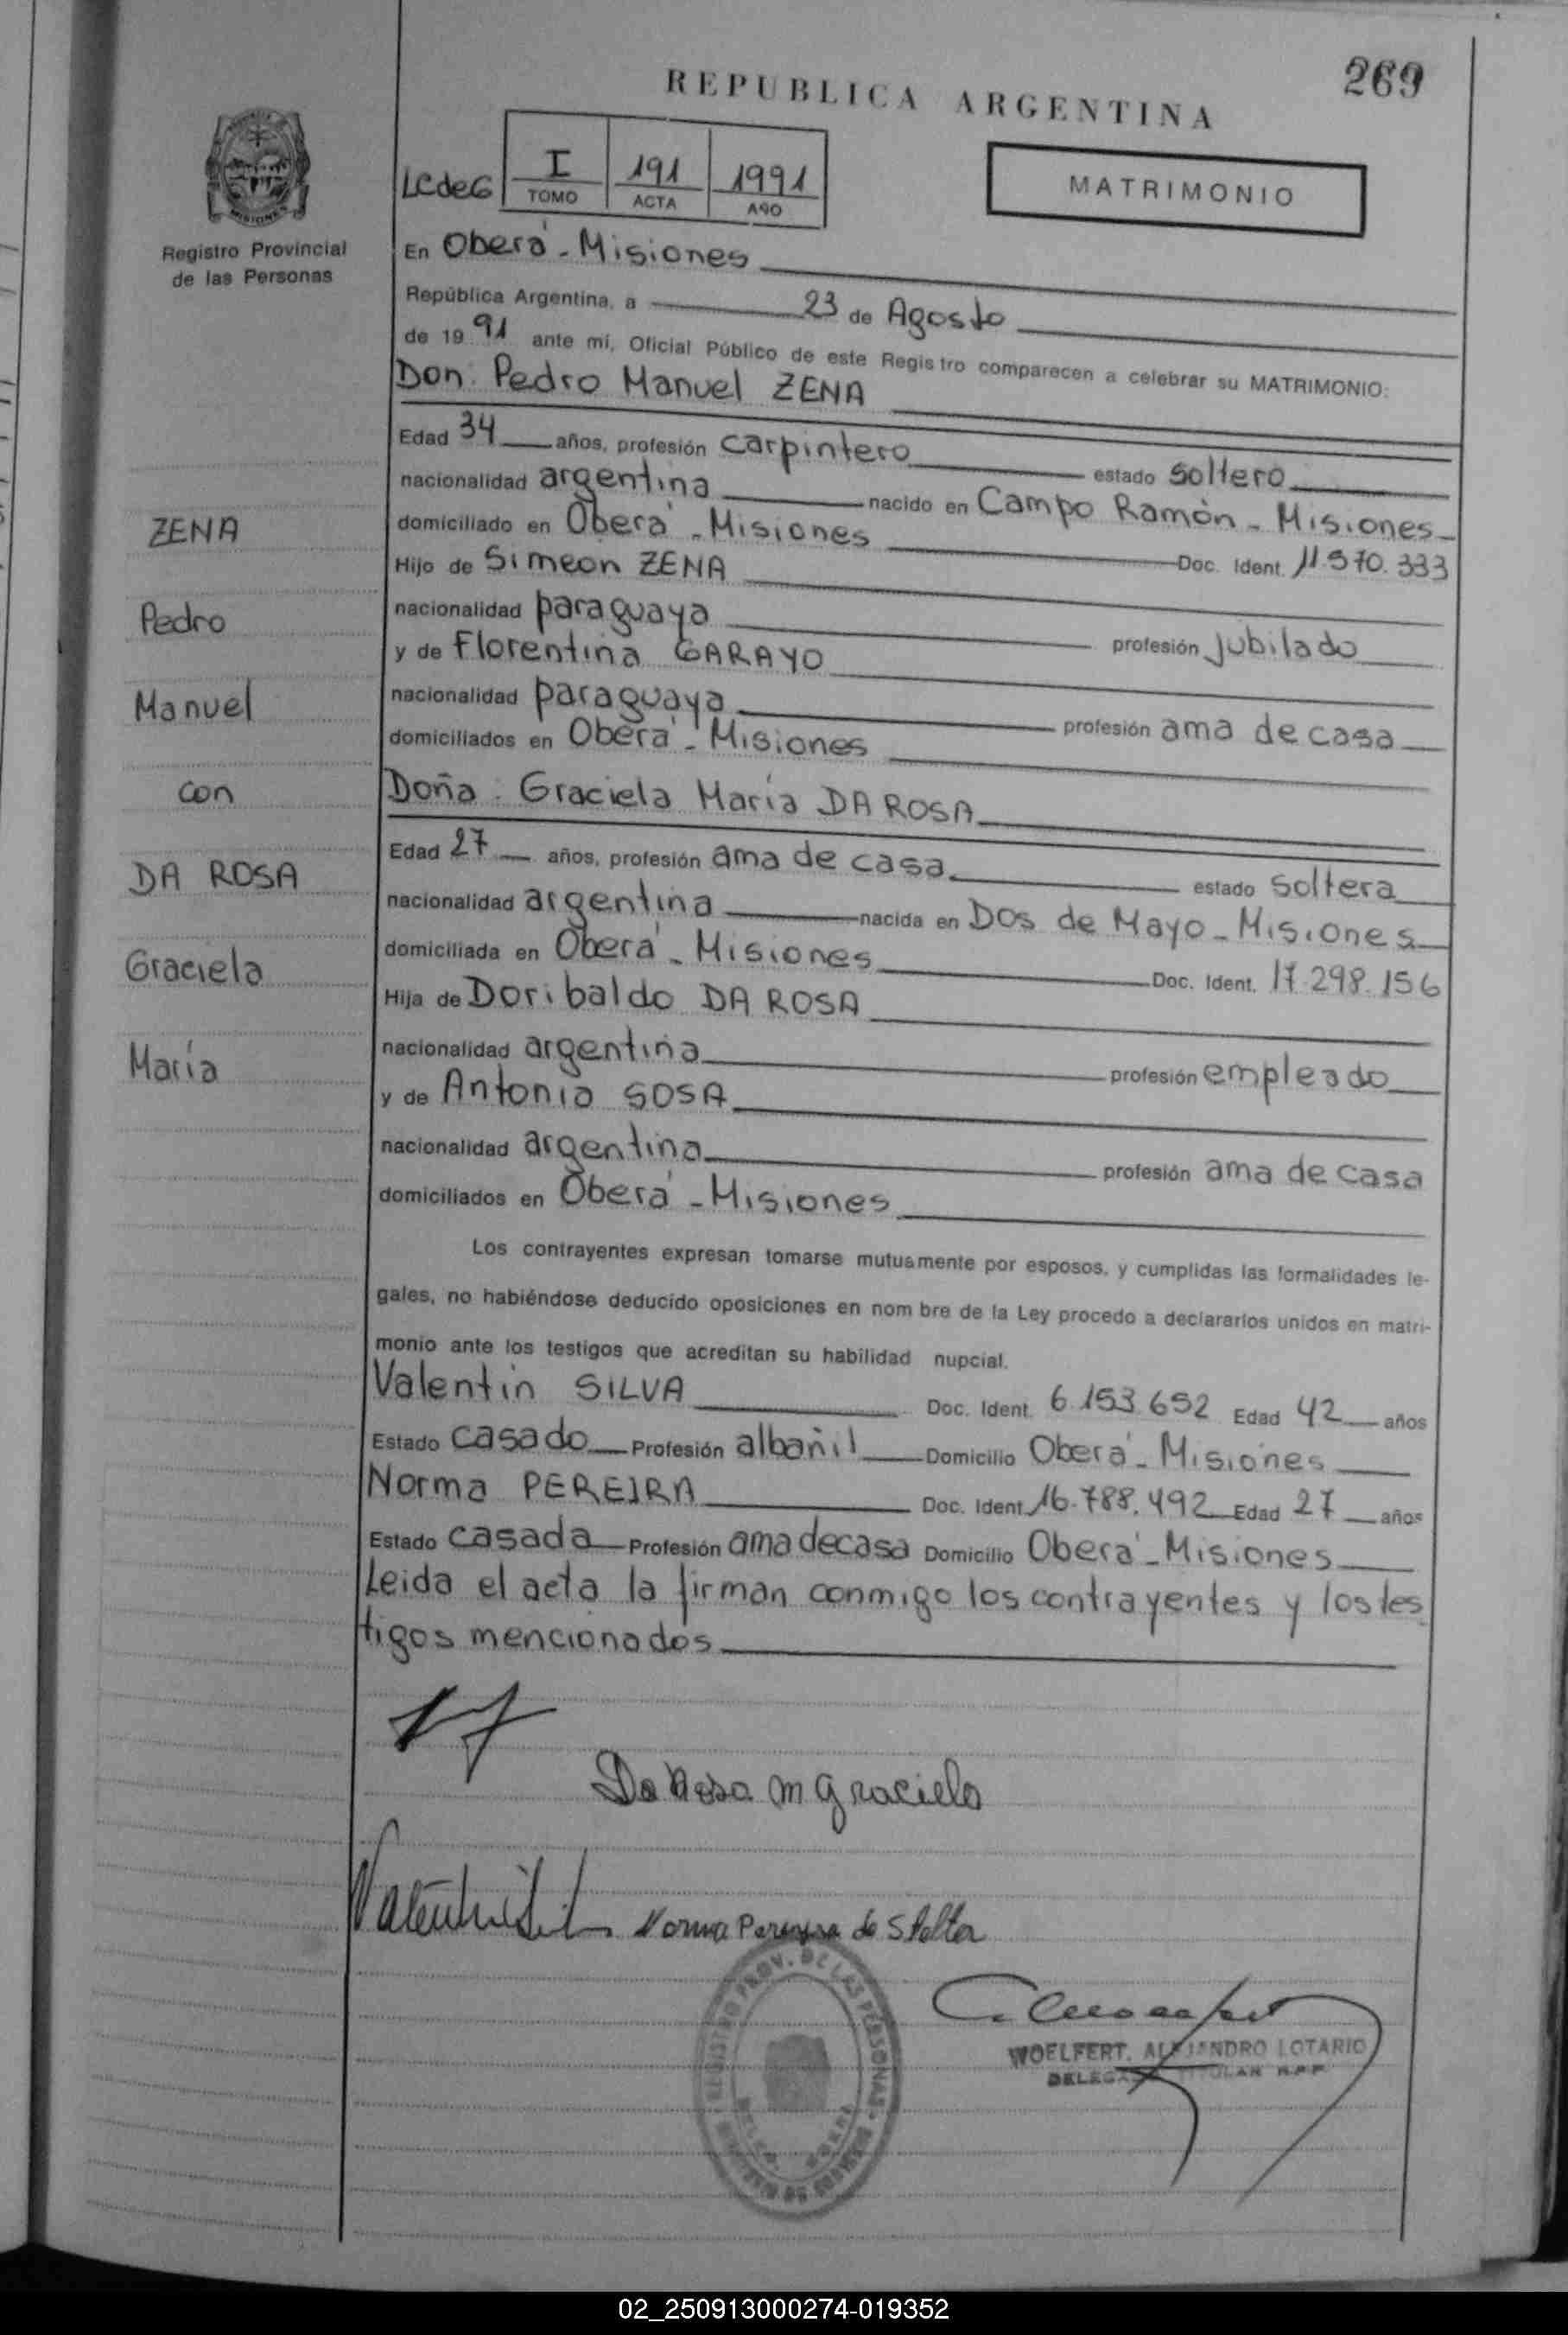 269
REPUBLICA ARGENTINA
MATRIMONIO
LCdeG I 191 1991
TOMO ACTA AÑO
MISIONES
Registro Provincial
de las Personas
En Oberá - Misiones
República Argentina, a 23 de Agosto
de 1991 ante mí, Oficial Público de este Registro comparecen a celebrar su MATRIMONIO:
Don: Pedro Manuel ZENA
Edad 34 años, profesión carpintero estado soltero
nacionalidad argentina nacido en Campo Ramón - Misiones
ZENA
domiciliado en Oberá - Misiones Doc. Ident. 11.570.333
Hijo de Simeon ZENA
nacionalidad paraguaya profesión jubilado
Pedro
y de Florentina GARAYO
nacionalidad paraguaya profesión ama de casa
Manuel
domiciliados en Oberá - Misiones
con
Doña: Graciela María DA ROSA
Edad 27 años, profesión ama de casa estado soltera
DA ROSA
nacionalidad argentina nacida en Dos de Mayo - Misiones
domiciliada en Oberá - Misiones Doc. Ident. 17.298.156
Graciela
Hija de Doribaldo DA ROSA
nacionalidad argentina profesión empleado
María
y de Antonia SOSA
nacionalidad argentina profesión ama de casa
domiciliados en Oberá - Misiones
Los contrayentes expresan tomarse mutuamente por esposos, y cumplidas las formalidades le-
gales, no habiéndose deducido oposiciones en nom bre de la Ley procedo a declararlos unidos en matri-
monio ante los testigos que acreditan su habilidad nupcial.
Valentin SILVA Doc. Ident. 6.153.652 Edad 42 años
Estado casado Profesión albañil Domicilio Oberá - Misiones
Norma PEREIRA Doc. Ident. 16.788.492 Edad 27 años
Estado casada Profesión ama de casa Domicilio Oberá - Misiones
Leida el acta la firman conmigo los contrayentes y los tes
tigos mencionados
Da Rosa M Graciela
Norma Pereyra de Stelter
REGISTRO PROV. DE LAS PERSONAS
WOELFERT, ALEJANDRO LOTARIO
DELEGADO TITULAR R.P.P.
02_250913000274-019352